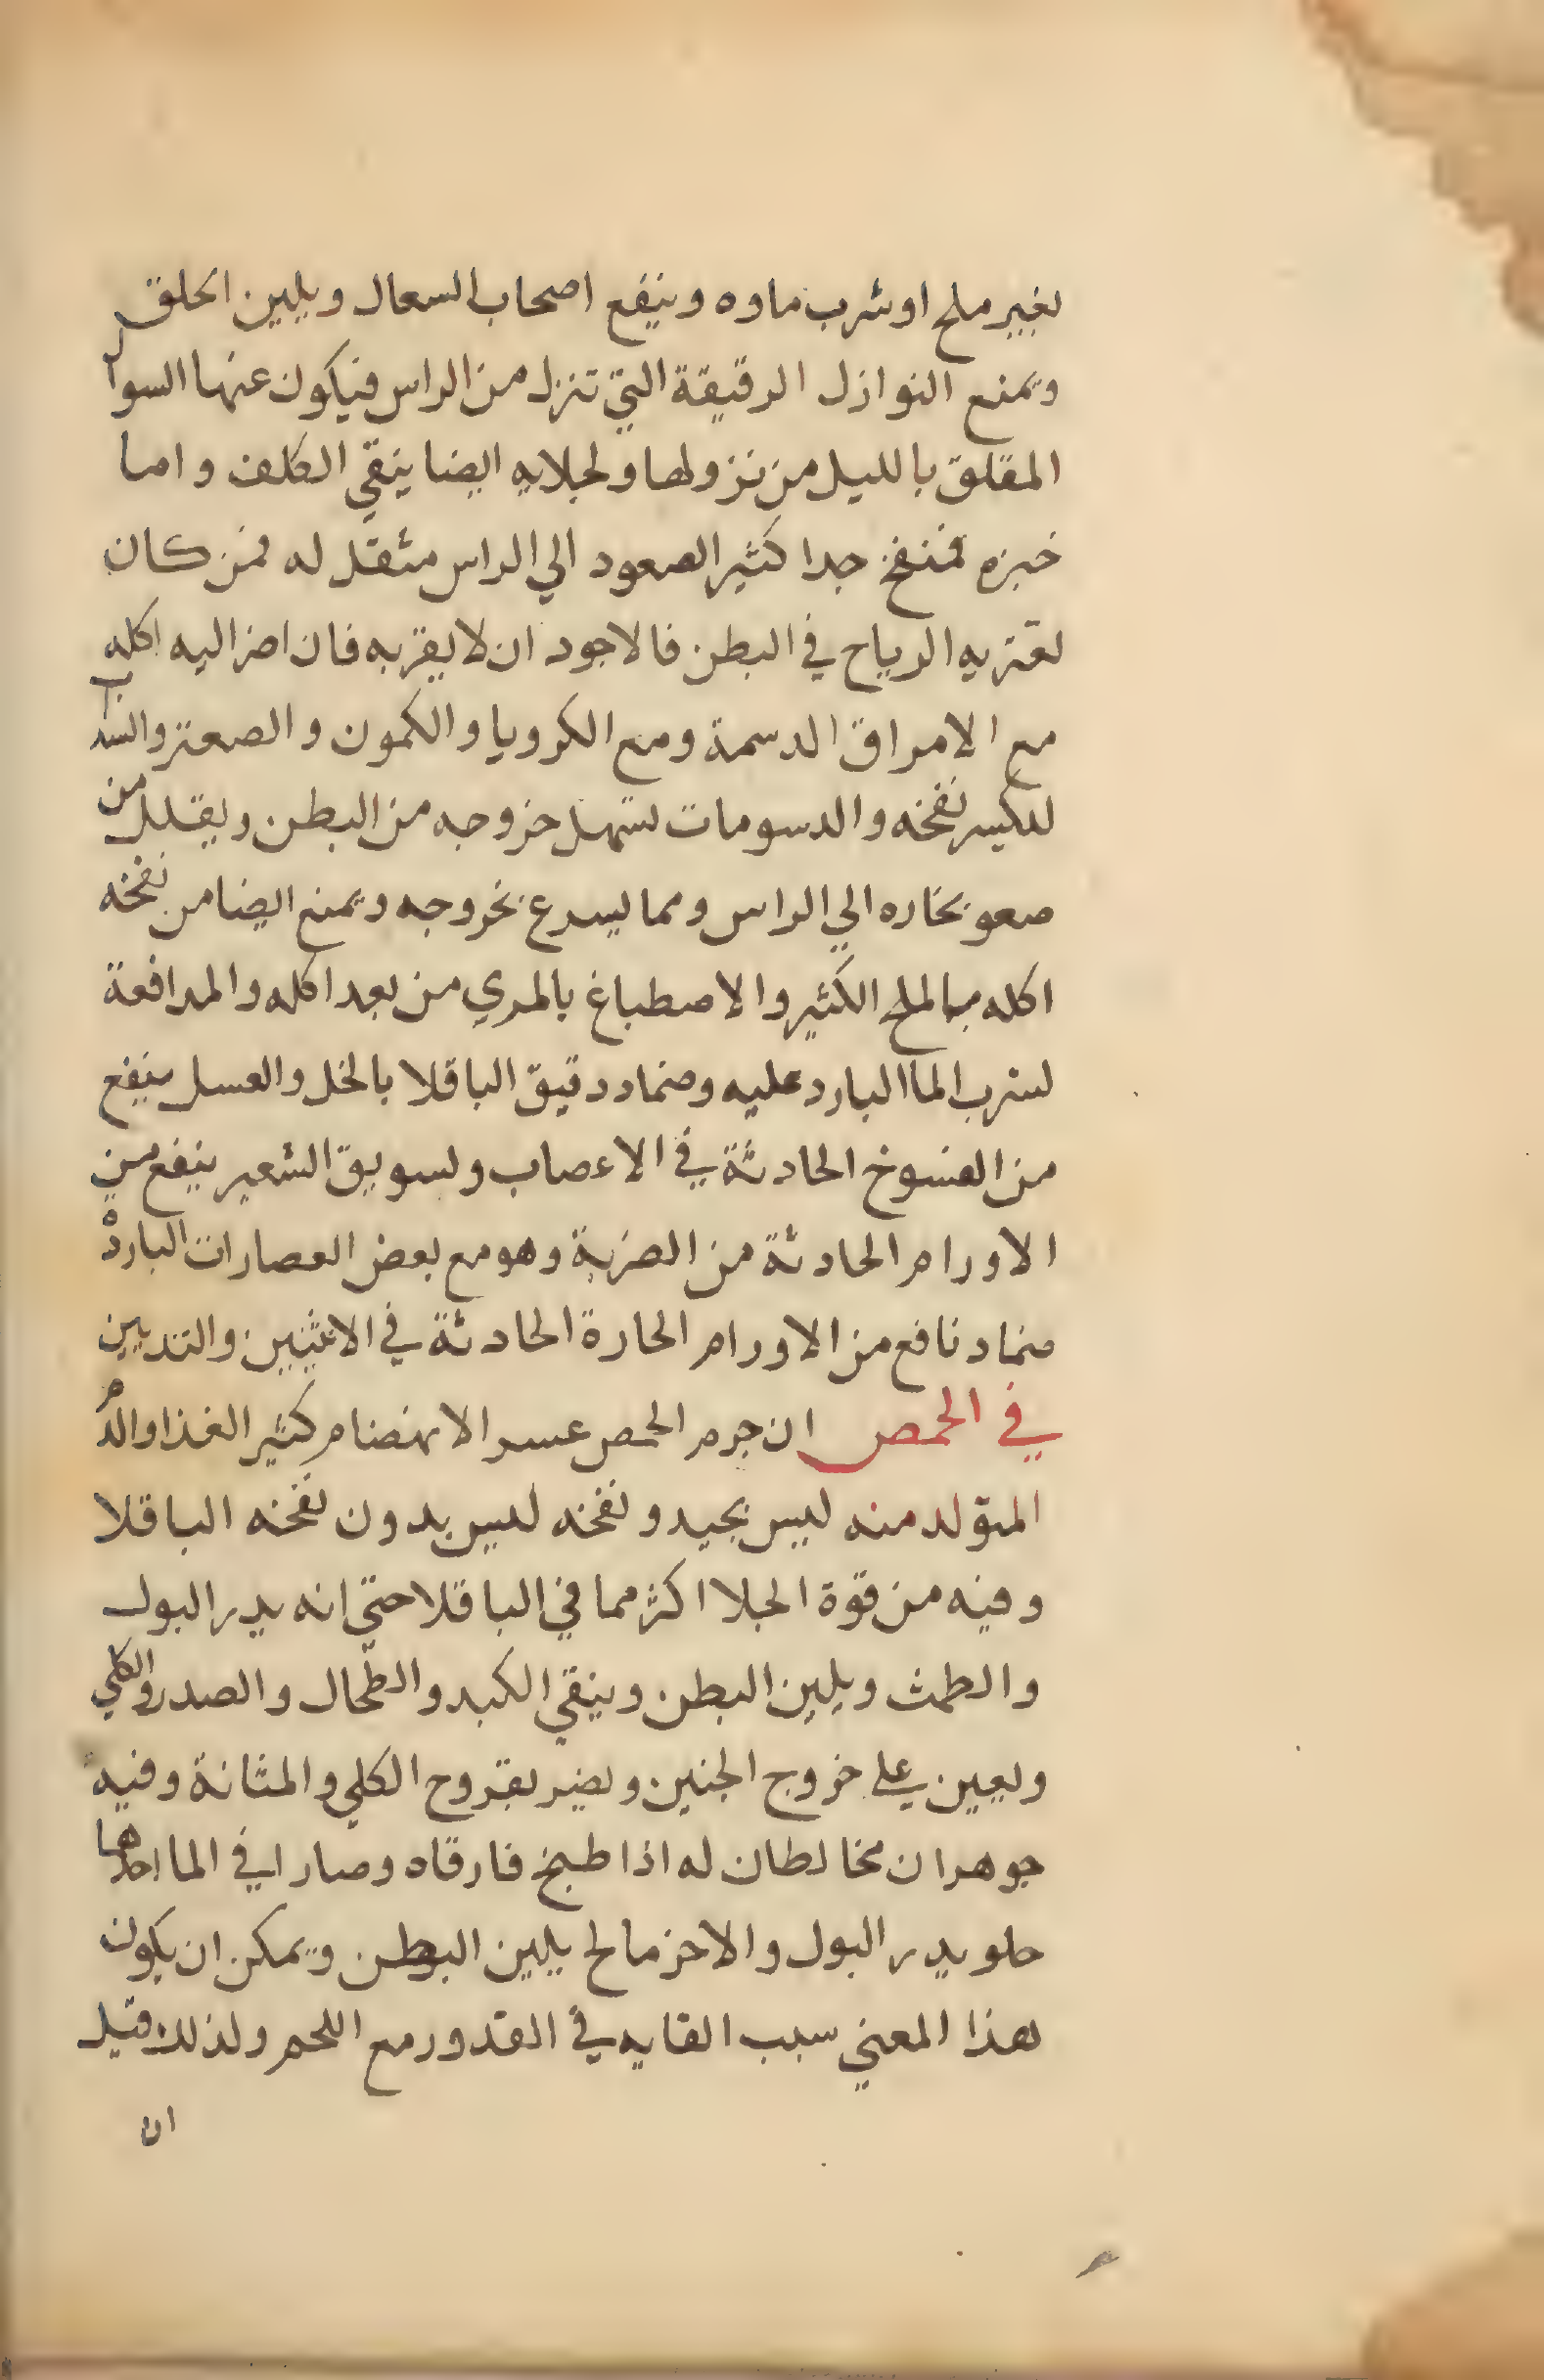 بغير ملح او شرب ماوه وينفع اصحاب السعال ويلين الحلق
ويمنع النوازل الرقيقة التي تنزل من الراس فيكون عنها السوال
المقلق بالليل من نزولها ولجلايه ايضا ينقي الكلف واما
خبزه فمنفخ جدا كثير الصعود الي الراس مثقل له فمن كان
تعتريه الرياح في البطن فالاجود ان لا يقربه فان اضر اليه اكله
مع الامراق الدسمة ومع الكرويا والكمون والصعتر والسداب
لتكسر نفخه والدسومات تسهل خروجه من البطن ويقلل من
صعو بخاره الي الراس ومما يسرع بخروجه ويمنع ايضا من نفخه
اكله بالملح الكثير والاصطباغ بالمري من بعد اكله والمدافعة
لشرب الما البارد عليه وضماد دقيق الباقلا بالخل والعسل ينفع
من الفسوخ الحادثة في الاعصاب ولسويق الشعير ينفع من
الاورام الحادثة من الضربة وهو مع بعض العصارات الباردة
ضماد نافع من الاورام الحارة الحادثة في الانثيين والثديين
في الحمص ان جرم الحمص عسر الانهضام كثير الغذا والدم
المتولد منه ليس بجيد ونفخه ليس بدون نفخه الباقلا
وفيه من قوة الجلا اكثر مما في الباقلا حتي انه يدر البول
والطمث ويلين البطن وينقي الكبد والطحال والصدر والكلي
ويعين علي خروج الجنين ويضر بقروح الكلي والمثانة وفيه
جوهران مخالطان له اذا طبخ فارقاه وصارا في الما احدهما
حلو يدر البول والاخر مالح يلين البطن ويمكن ان يكون
هذا المعني سبب القايه في القدور مع اللحم ولذلك قيل
ان